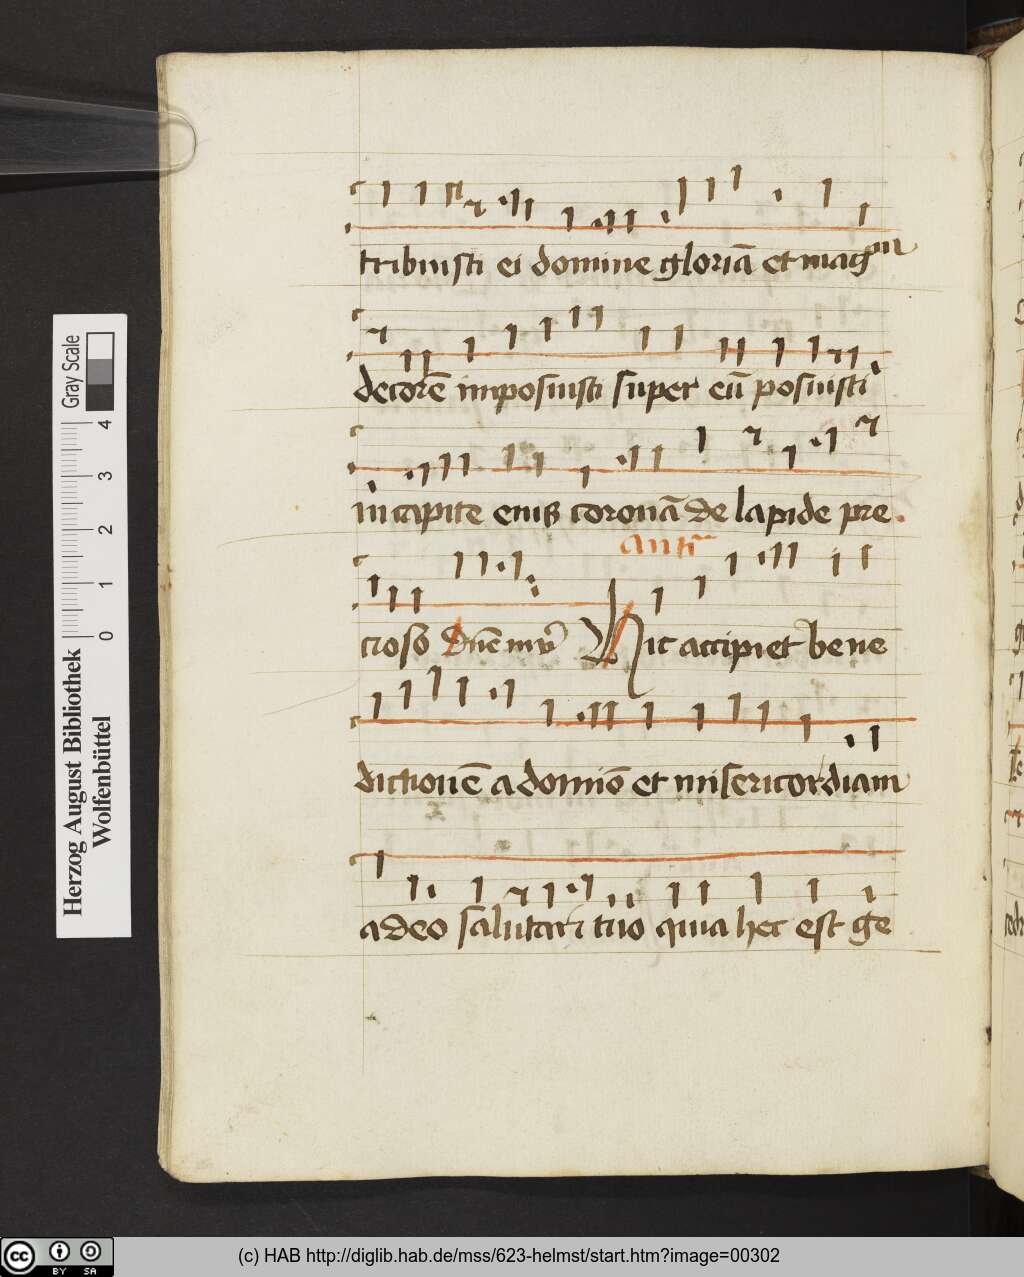 tribuisti ei domine gloriā et mag^m
decorē imposuisti super eū posuisti
in capite eius coronā de lapide pre
Antī
cioso Dn̄e in vͥ Hic accipiet bene
dictionē a domīo et misericordiam
a deo salutari tuo quia hec est ge
Gray Scale
4
3
2
1
0
Herzog August Bibliothek
Wolfenbüttel
cc BY SA
(c) HAB http://diglib.hab.de/mss/623-helmst/start.htm?image=00302